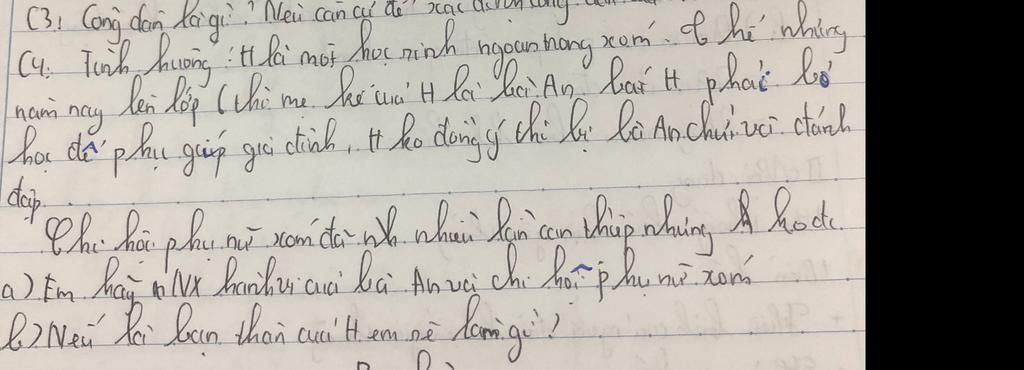 C3: Công dân là gì? Nêu căn cứ để xác định công
C4. Tình huống: H là một học sinh ngoan trong xóm. Thế nhưng
năm nay lên lớp 6 thì mẹ kế của H là bà An bắt H phải bỏ
học để phụ giúp gia đình, H ko đồng ý thì bị bà An chửi và đánh
đập.
Chi hội phụ nữ xóm đã nh nhiều lần can thiệp nhưng ko đc.
a) Em hãy NX hành vi của bà An và chi hội phụ nữ xóm
b) Nếu là bạn thân của H em sẽ làm gì?